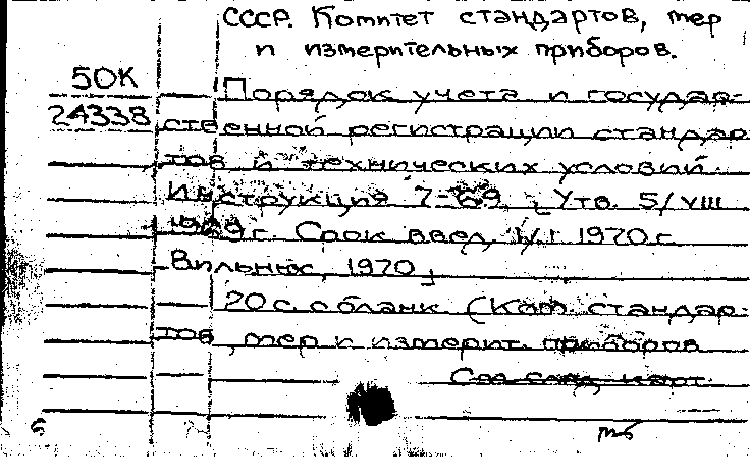 СССР. Комитет стандартов, мер
и измерительных приборов.
50К
24338
Порядок учета и государ-
ственной регистрации стандар
тов и технических условий.
Инструкция 7-69. Утв. 5/VIII
1969 г. Срок введ. 1/I 1970 г.
Вильнюс, 1970.
20 с. с бланк. (Ком. стандар-
тов, мер и измерит. приборов
См. след. карт.